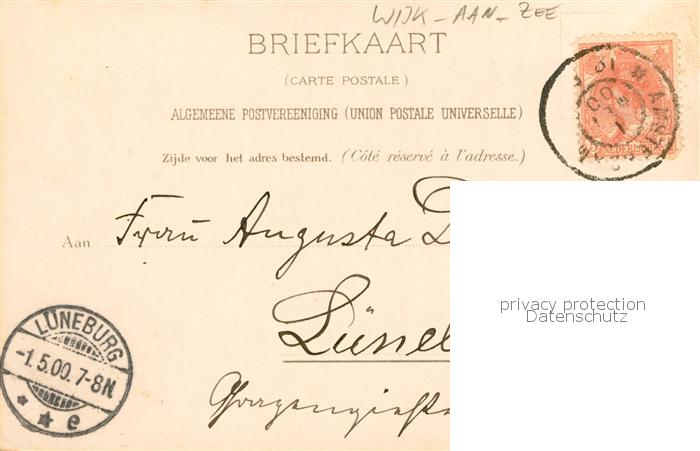 WIJK - AAN - ZEE
BRIEFKAART
(CARTE POSTALE)
ALGEMEENE POSTVEREENIGING (UNION POSTALE UNIVERSELLE)
Zijde voor het adres bestemd. (Côté réservé à l'adresse.)
Aan Frau Augusta
LÜNEBURG
-1.5.00.7-8N
* * e
privacy protection
Datenschutz